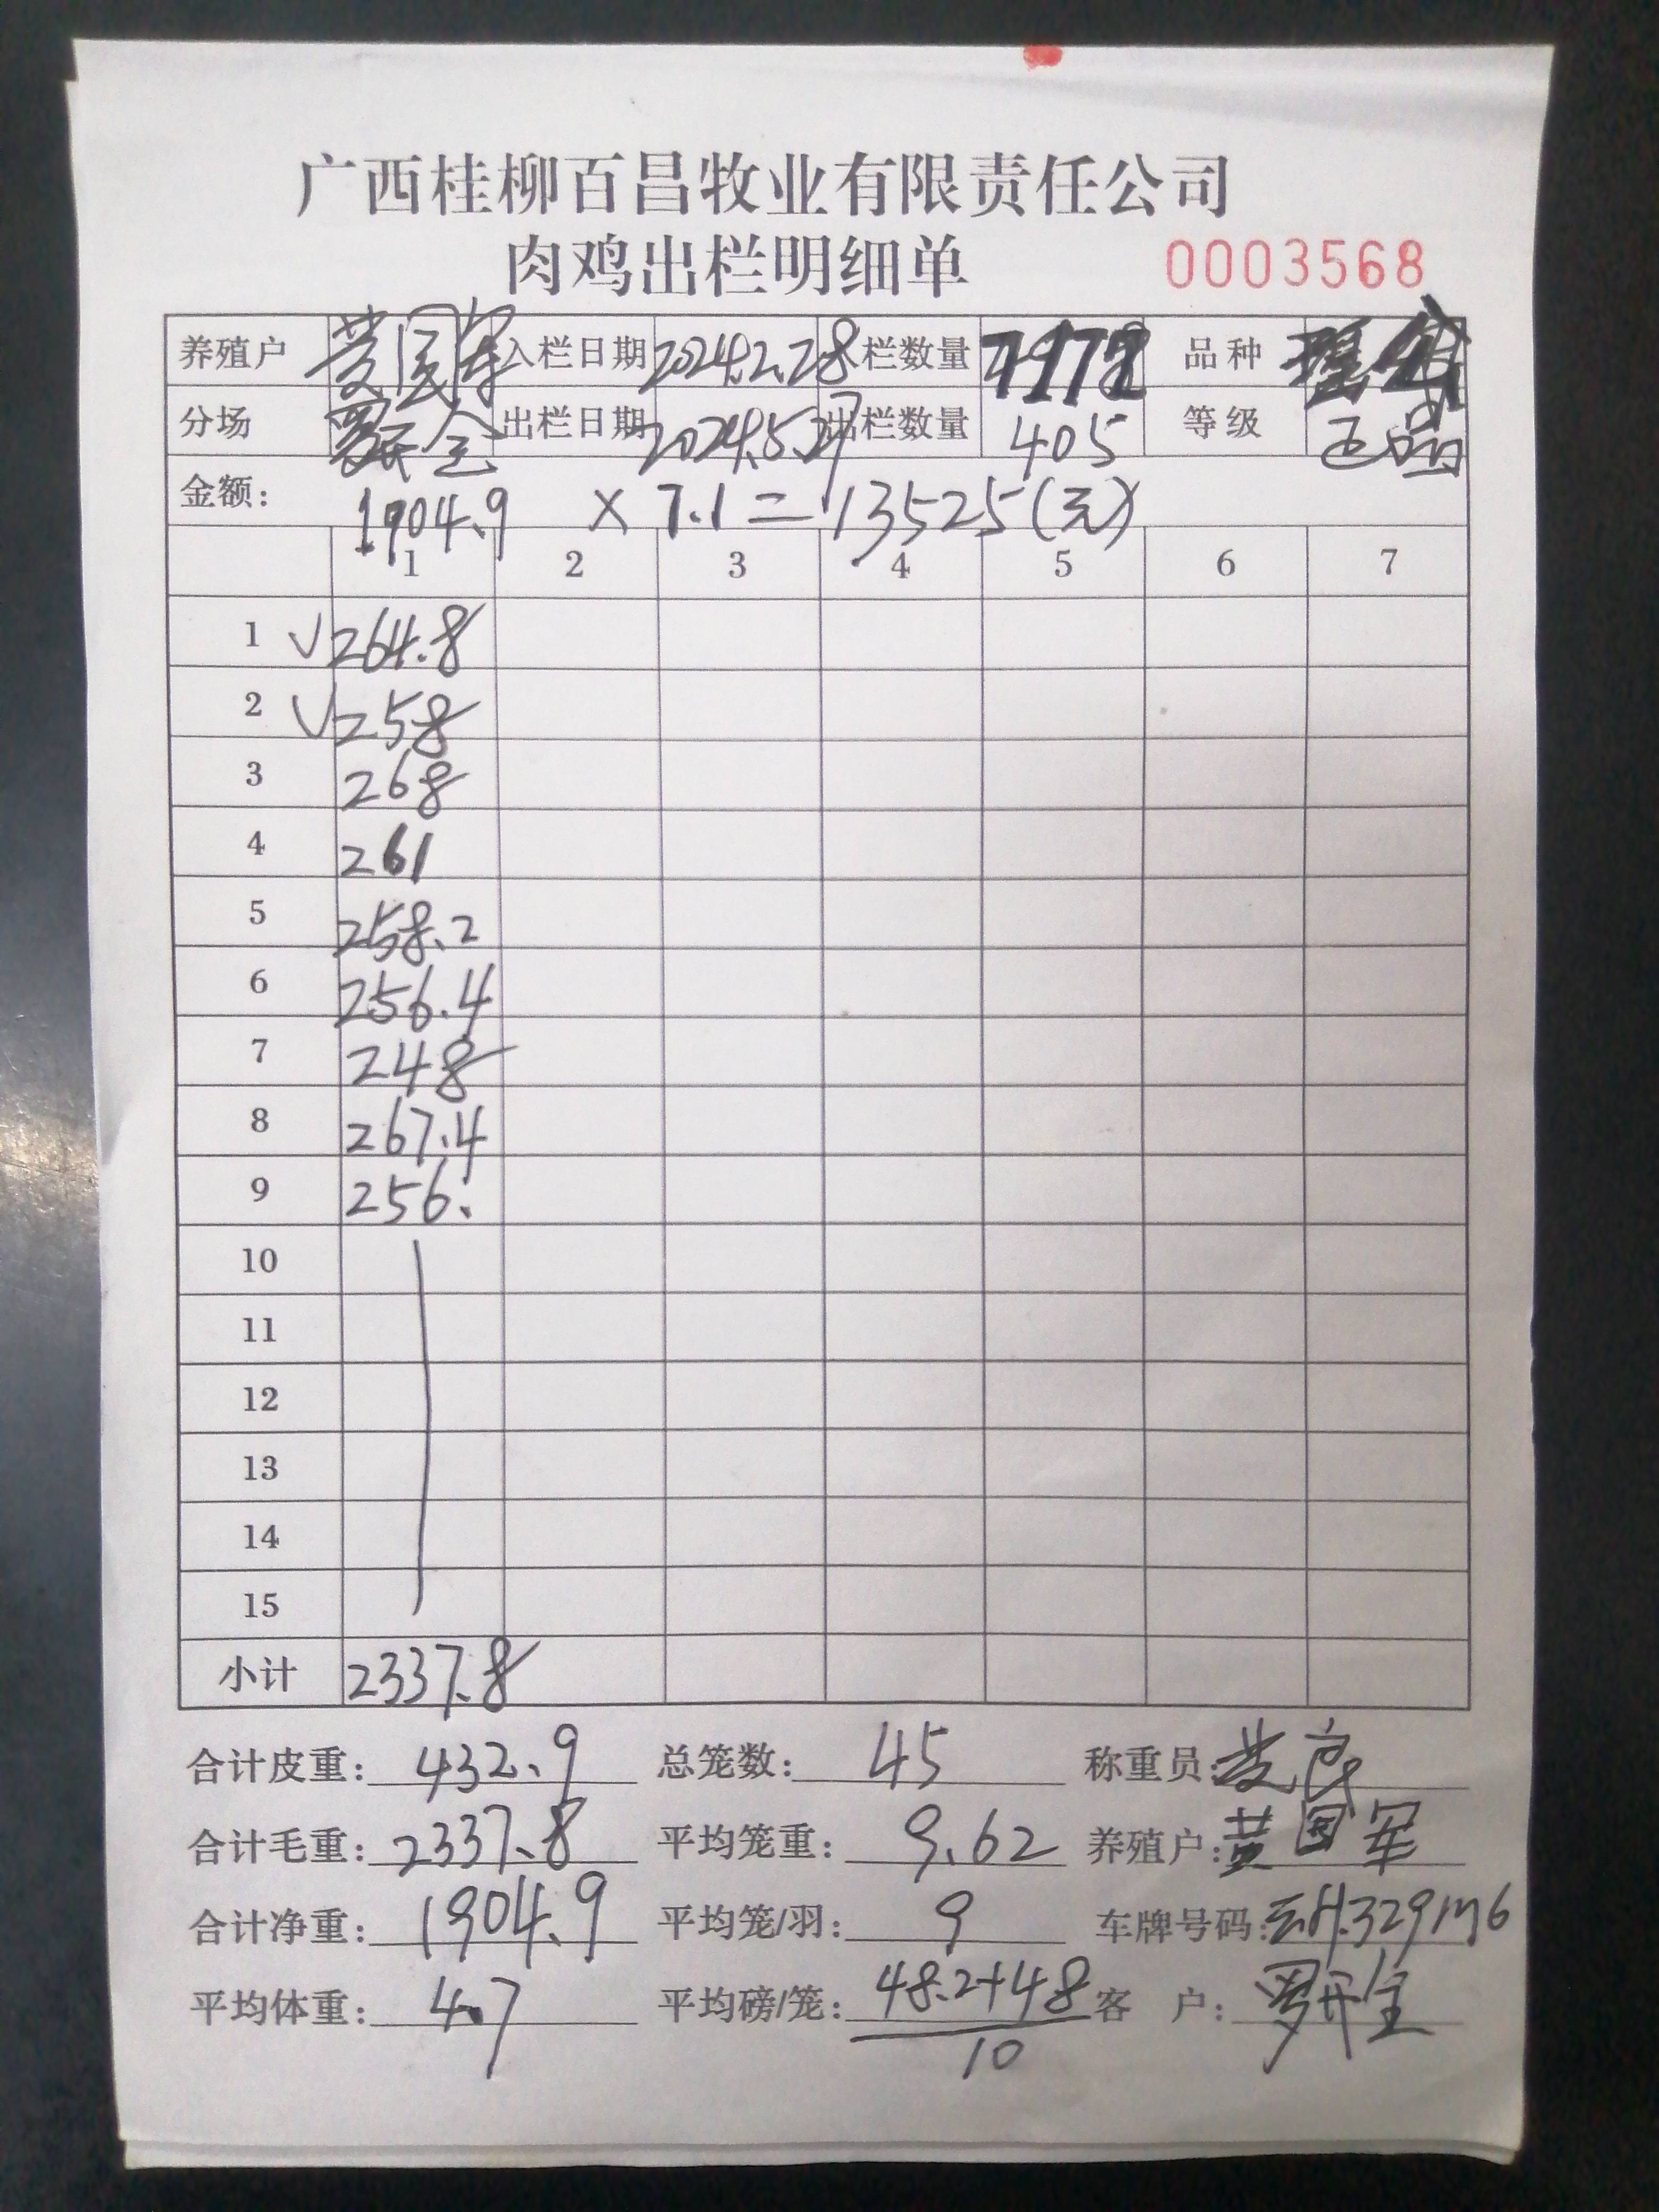 广西桂柳百昌牧业有限责任公司
肉鸡出栏明细单 0003568
养殖户 黄国军 入栏日期 2024.2.28 入栏数量 品种
分场 出栏日期 2024.5.27 出栏数量 405 等级 正品
金额: 1904.9 × 7.1 = 13525(元)
1 2 3 4 5 6 7
1 √264.8
2 √258
3 268
4 261
5 258.2
6 256.4
7 248
8 267.4
9 256.
10
11
12
13
14
15
小计 2337.8
合计皮重: 432.9 总笼数: 45 称重员:
合计毛重: 2337.8 平均笼重: 9.62 养殖户: 黄国军
合计净重: 1904.9 平均笼/羽: 9 车牌号码: 云H329M6
平均体重: 4.7 平均磅/笼: 48.2+48 客 户:
10